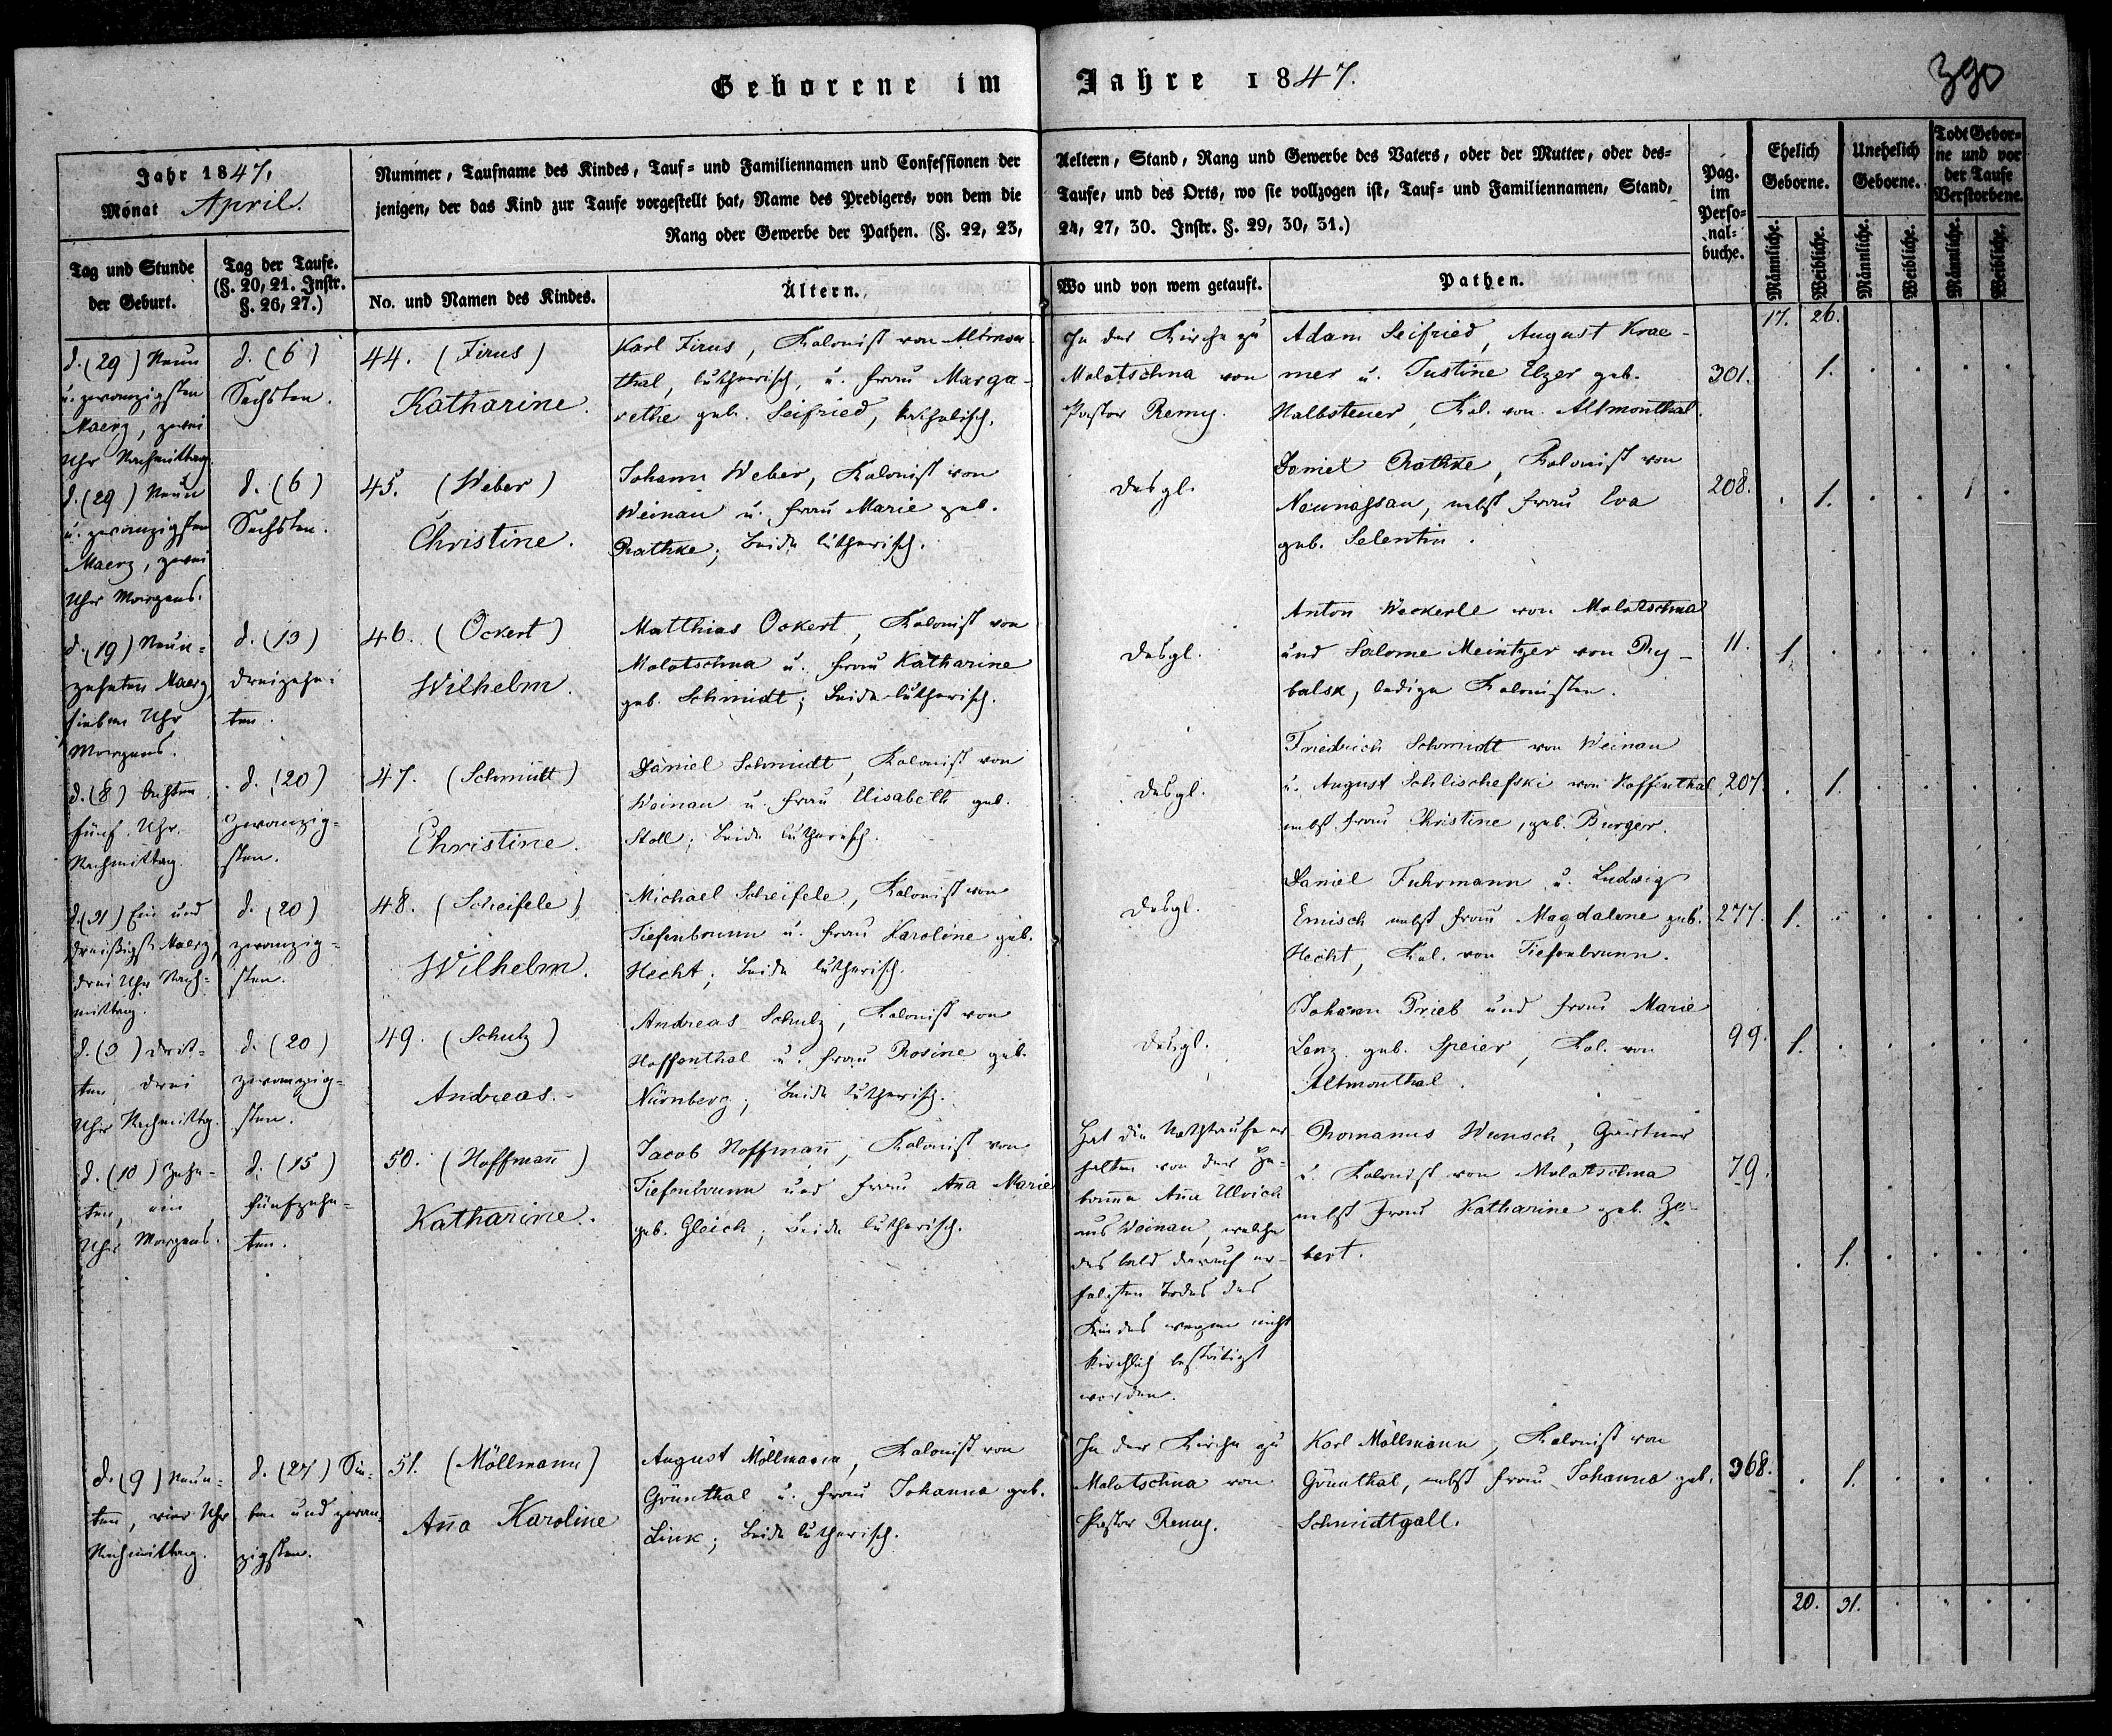 Geborene im Jahre 1847.
390
Jahr 1847.
Monat April.
Nummer, Taufname des Kindes, Tauf- und Familiennamen und Confessionen der Aeltern, Stand, Rang und Gewerbe des Vaters, oder der Mutter, oder des-
jenigen, der das Kind zur Taufe vorgestellt hat, Name des Predigers, von dem die Taufe, und des Orts, wo sie vollzogen ist, Tauf- und Familiennamen, Stand,
Rang oder Gewerbe der Pathen. (§. 22, 23, 24, 27, 30. Instr. §. 29, 30, 31.)
Pag.
im
Perso-
nal-
buche.
Ehelich
Geborne.
Unehelich
Geborne.
Todt Gebor-
ne und vor
der Taufe
Verstorbene.
Tag und Stunde
der Geburt.
Tag der Taufe.
(§. 20, 21. Instr.
§. 26, 27.)
No. und Namen des Kindes.
Ältern.
Wo und von wem getauft.
Pathen.
Männliche.
Weibliche.
Männliche.
Weibliche.
Männliche.
Weibliche.
17. 26.
d. (29) Neun
u. zwanzigsten
Maerz, zwei
Uhr Nachmittag.
d. (6)
Sechsten.
44. (Firus)
Katharine.
Karl Firus, Kolonist von Altmon-
thal, lutherisch, u. Frau Marga-
rethe geb. Seifried, katholisch.
In der Kirche zu
Molotschna von
Pastor Remy.
Adam Seifried, August Krae-
mer u. Justine Elzer geb.
Halbsteuer, Kol. von Altmonthal.
301.
1.
d. (29) Neun
u. zwanzigsten
Maerz, zwei
Uhr Morgens.
d. (6)
Sechsten.
45. (Weber)
Christine.
Johann Weber, Kolonist von
Weinau u. Frau Marie geb.
Rathke; beide lutherisch.
desgl.
Daniel Rathke, Kolonist von
Neunassau, nebst Frau Eva
geb. Selentin.
208.
1.
d. (19) Neun-
zehnten Maerz
sieben Uhr
Morgens.
d. (13)
dreizehn-
ten.
46. (Ockert)
Wilhelm.
Matthias Ockert, Kolonist von
Molotschna u. Frau Katharine
geb. Schmidt; beide lutherisch.
desgl.
Anton Weckerle von Molotschna
und Salome Meintzer von Ry-
balsk, ledige Kolonisten.
11.
1.
d. (8) Achten
fünf Uhr
Nachmittag.
d. (20)
zwanzig-
sten.
47. (Schmidt)
Christine.
Daniel Schmidt, Kolonist von
Weinau u. Frau Elisabeth geb.
Stoll; beide lutherisch.
desgl.
Friedrich Schmidt von Weinau
u. August Schlischefski von Hoffenthal
nebst Frau Christine, geb. Burger.
207.
1.
d. (31) Ein und
dreißigst. Maerz,
drei Uhr Nach-
mittag.
d. (20)
zwanzig-
sten.
48. (Scheifele)
Wilhelm.
Michael Scheifele, Kolonist von
Tiefenbrunn u. Frau Karoline geb.
Hecht; beide lutherisch.
desgl.
Daniel Fuhrmann u. Ludwig
Emisch nebst Frau Magdalene geb.
Hecht, Kol. von Tiefenbrunn.
277.
1.
d. (3) drit-
ten, drei
Uhr Nachmittag.
d. (20)
zwanzig-
sten.
49. (Schulz)
Andreas.
Andreas Schulz, Kolonist von
Hoffenthal u. Frau Rosine geb.
Nürnberg; beide lutherisch.
desgl.
Johann Prieb und Frau Marie
Lenz geb. Speier, Kol. von
Altmonthal.
99.
1.
d. (10) Zehn-
ten, ein
Uhr Morgens.
d. (15)
fünfzehn-
ten.
50. (Hoffmañ)
Katharine.
Jacob Hoffmañ, Kolonist von
Tiefenbrunn und Frau Aña Marie
geb. Gleich; beide lutherisch.
Hat die Nothtaufe er-
halten von der He-
bame Aña Ullrich
aus Weinau, welche
des bald darauf er-
folgten Todes des
Kindes wegen nicht
kirchlich bestätigt
worden.
Romanus Wunsch, Gärtner
u. Kolonist von Molotschna
nebst Frau Katharine geb. Ze-
bert.
79.
1.
d. (9) Neun-
ten, vier Uhr
Nachmittag.
d. (27) Sie-
ben und zwan-
zigsten.
51. (Möllmann)
Aña Karoline
August Möllmann, Kolonist von
Grünthal u. Frau Johanna geb.
Link; beide lutherisch.
In der Kirche zu
Molotschna von
Pastor Remy.
Karl Möllmann, Kolonist von
Grünthal, nebst Frau Johanna geb.
Schmidtgall.
368.
1.
20. 31.